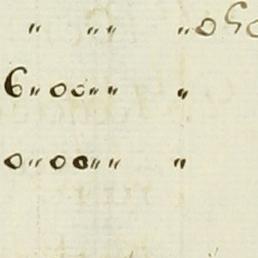 " " " " 050
6 " 00 " " "
0 " 00 " " "